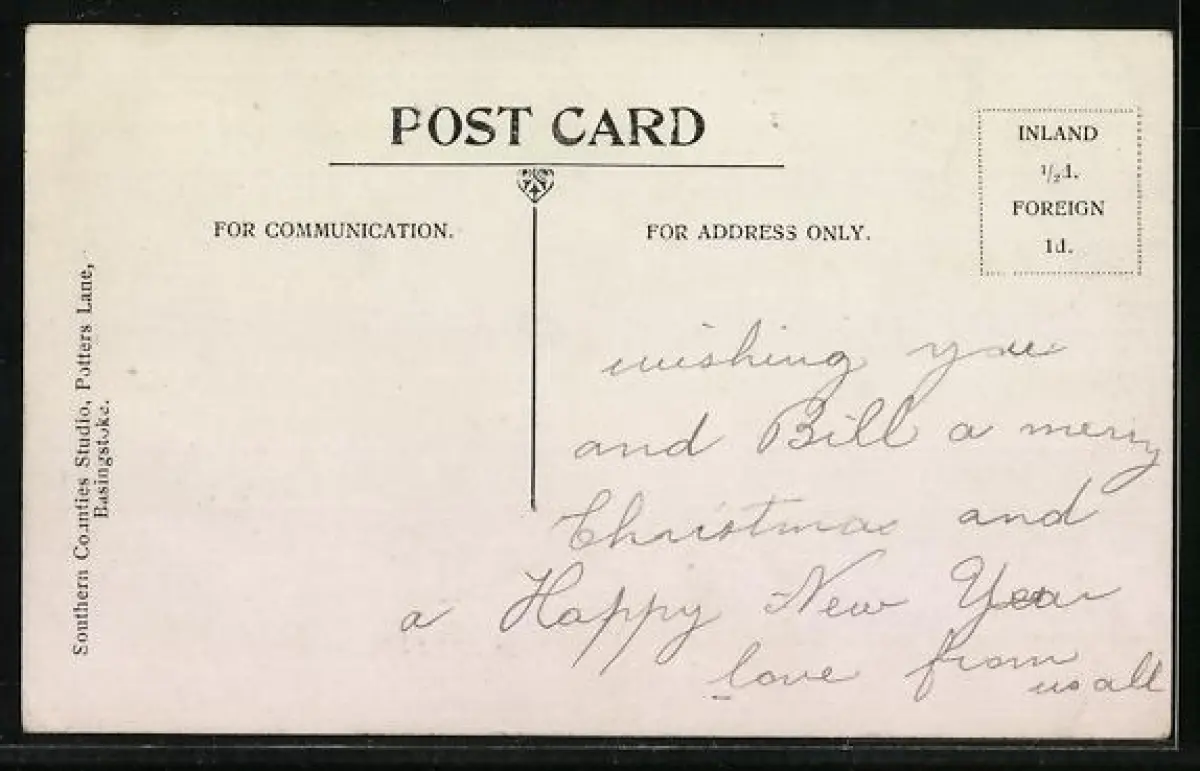 POST CARD
FOR COMMUNICATION.
FOR ADDRESS ONLY.
INLAND
1/2d.
FOREIGN
1d.
Southern Counties Studio, Potters Lane,
Basingstoke.
wishing you
and Bill a merry
Christmas and
a Happy New Year
love from
us all